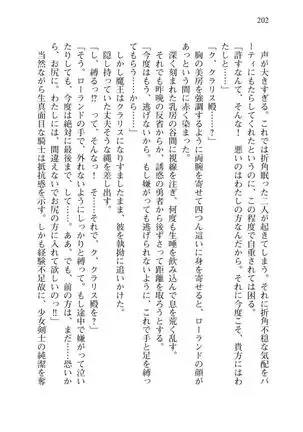 202
声が大きすぎる。これでは折角眠った二人が起きてしまう。折角不穏な気配をパ
ーティにもたらしてくれたというのに、この程度で自重されては困る。
「許すなんて、そんな！　悪いのはわたしの方なんだから、それに今度こそ、貴方にはわ
たしと……」
「ク、クラリス殿……？」
胸の美房を強調するように両腕を寄せて四つん這いに身を寄せると、ローランドの顔が
あっという間に赤く染まった。
深く刻まれた乳房の谷間に視線を注ぎ、何度も生唾を飲み込んで息を荒く乱す。
それでも昨晩の反省からか、誘惑の勇者から後ずさって距離を取ろうとする。
「今度はもう、逃げないから。もし嫌がっても逃げられないように、これで手と足を縛っ
てもらう から……」
しかし魔王はクラリスに、彼を執拗に追い詰めていく。
隠し持っていた丈夫そうな縄を差し出す。
「し、縛るっ!?　って、そんなっ！　そ……それで、ク、クラリス殿を？」
「そう、ローランドの手で、外れないようにしっかりと縛って。もし途中で嫌がって泣い
たりしても、今度は絶対に最後まで、して……ああ、でも、前の方は、まだ……恐いか
ら、お尻に。わたしには、間違えないでお尻の方に入れて欲しいの」
少女ながらに生真面目な騎士は抵抗感を示す。しかし経験不足故に、少女剣士の純潔を奪